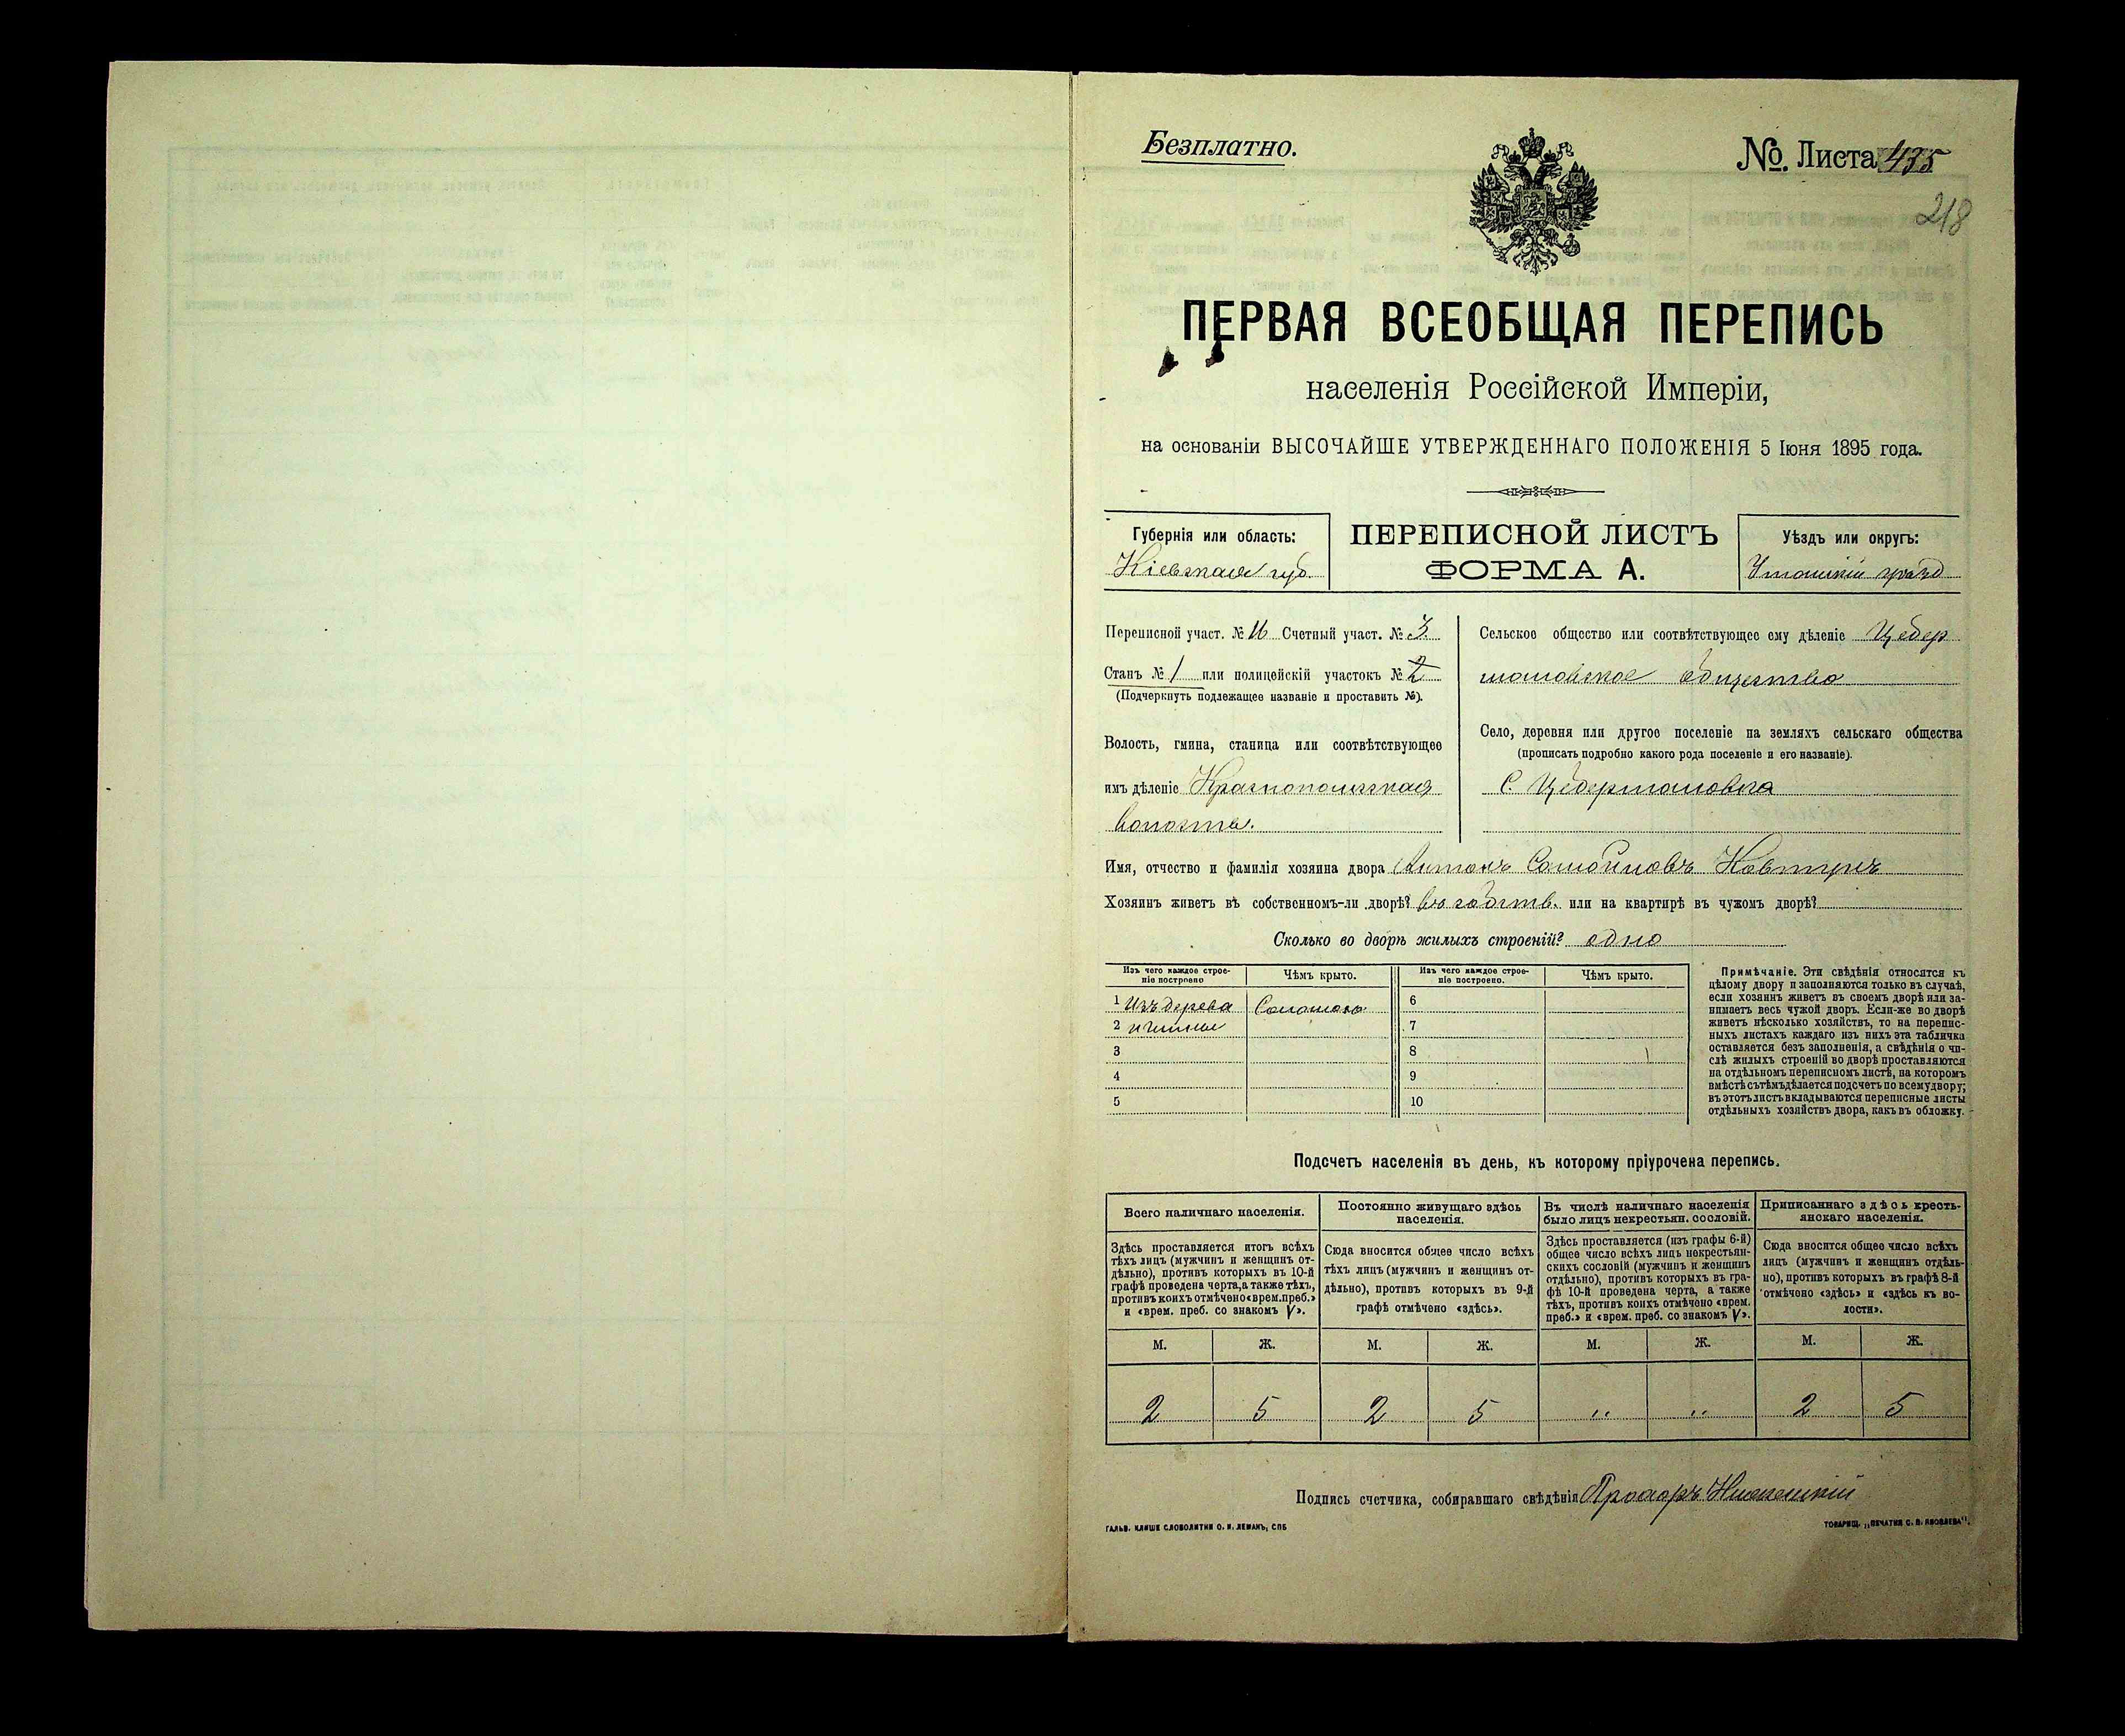 Безплатно.
№. Листа 435
218
ПЕРВАЯ ВСЕОБЩАЯ ПЕРЕПИСЬ
населенія Россійской Имперіи,
на основаніи ВЫСОЧАЙШЕ УТВЕРЖДЕННАГО ПОЛОЖЕНІЯ 5 Іюня 1895 года.
Губернія или область:
Кіевская губ.
ПЕРЕПИСНОЙ ЛИСТЪ
ФОРМА А.
Уѣздъ или округъ:
Уманскій уѣздъ
Переписной участ. № Счетный участ. № 3
Станъ № 1 или полицейскій участокъ № 2
(Подчеркнуть подлежащее названіе и проставить №).
Волость, гмина, станица или соотвѣтствующее
имъ дѣленіе Краснопольская
волость.
Сельское общество или соотвѣтствующее ему дѣленіе Цебер
мановское общество
Село, деревня или другое поселеніе на земляхъ сельскаго общества
(прописать подробно какого рода поселеніе и его названіе).
С. Цебермановка
Имя, отчество и фамилія хозяина двора Антонъ Самойловъ
Хозяинъ живетъ въ собственномъ-ли дворѣ? въ собств. или на квартирѣ въ чужомъ дворѣ?
Сколько во дворѣ жилыхъ строеній? одно
Изъ чего каждое строе-
ніе построено
Чѣмъ крыто.
Изъ чего каждое строе-
ніе построено.
Чѣмъ крыто.
1 Изъ дерева Соломою 6
2 и глины 7
3 8
4 9
5 10
Примѣчаніе. Эти свѣдѣнія относятся къ
цѣлому двору и заполняются только въ случаѣ,
если хозяинъ живетъ въ своемъ дворѣ или за-
нимаетъ весь чужой дворъ. Если-же во дворѣ
живетъ нѣсколько хозяйствъ, то на перепис-
ныхъ листахъ каждаго изъ нихъ эта табличка
оставляется безъ заполненія, а свѣдѣнія о чи-
слѣ жилыхъ строеній во дворѣ проставляются
на отдѣльномъ переписномъ листѣ, на которомъ
вмѣстѣ съ тѣмъ дѣлается подсчетъ по всему двору;
въ этотъ листъ вкладываются переписные листы
отдѣльныхъ хозяйствъ двора, какъ въ обложку.
Подсчетъ населенія въ день, къ которому пріурочена перепись.
Всего наличнаго населенія.
Здѣсь проставляется итогъ всѣхъ
тѣхъ лицъ (мужчинъ и женщинъ от-
дѣльно), противъ которыхъ въ 10-й
графѣ проведена черта, а также тѣхъ,
противъ коихъ отмѣчено «врем. преб.»
и «врем. преб. со знакомъ V».
Постоянно живущаго здѣсь
населенія.
Сюда вносится общее число всѣхъ
тѣхъ лицъ (мужчинъ и женщинъ от-
дѣльно), противъ которыхъ въ 9-й
графѣ отмѣчено «здѣсь».
Въ числѣ наличнаго населенія
было лицъ некрестьян. сословій.
Здѣсь проставляется (изъ графы 6-й)
общее число всѣхъ лицъ некрестьян-
скихъ сословій (мужчинъ и женщинъ
отдѣльно), противъ которыхъ въ гра-
фѣ 10-й проведена черта, а также
тѣхъ, противъ коихъ отмѣчено «врем.
преб.» и «врем. преб. со знакомъ V».
Приписаннаго здѣсь кресть-
янскаго населенія.
Сюда вносится общее число всѣхъ
лицъ (мужчинъ и женщинъ отдѣль-
но), противъ которыхъ въ графѣ 8-й
отмѣчено «здѣсь» и «здѣсь къ во-
лости».
М. Ж. М. Ж. М. Ж. М. Ж.
2 5 2 5 " " 2 5
Подпись счетчика, собиравшаго свѣдѣнія Прохоръ
ГАЛЬВ. КЛИШЕ СЛОВОЛИТНИ О. И. ЛЕМАНЪ, СПБ
ТОВАРИЩ. „ПЕЧАТНЯ С. П. ЯКОВЛЕВА“.